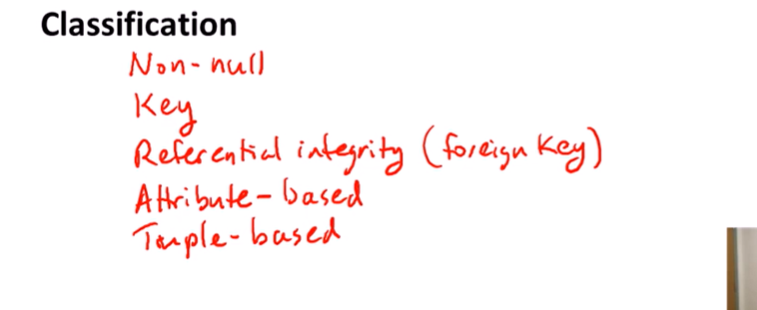 Classification
Non-null
Key
Referential integrity (foreign key)
Attribute-based
Tuple-based